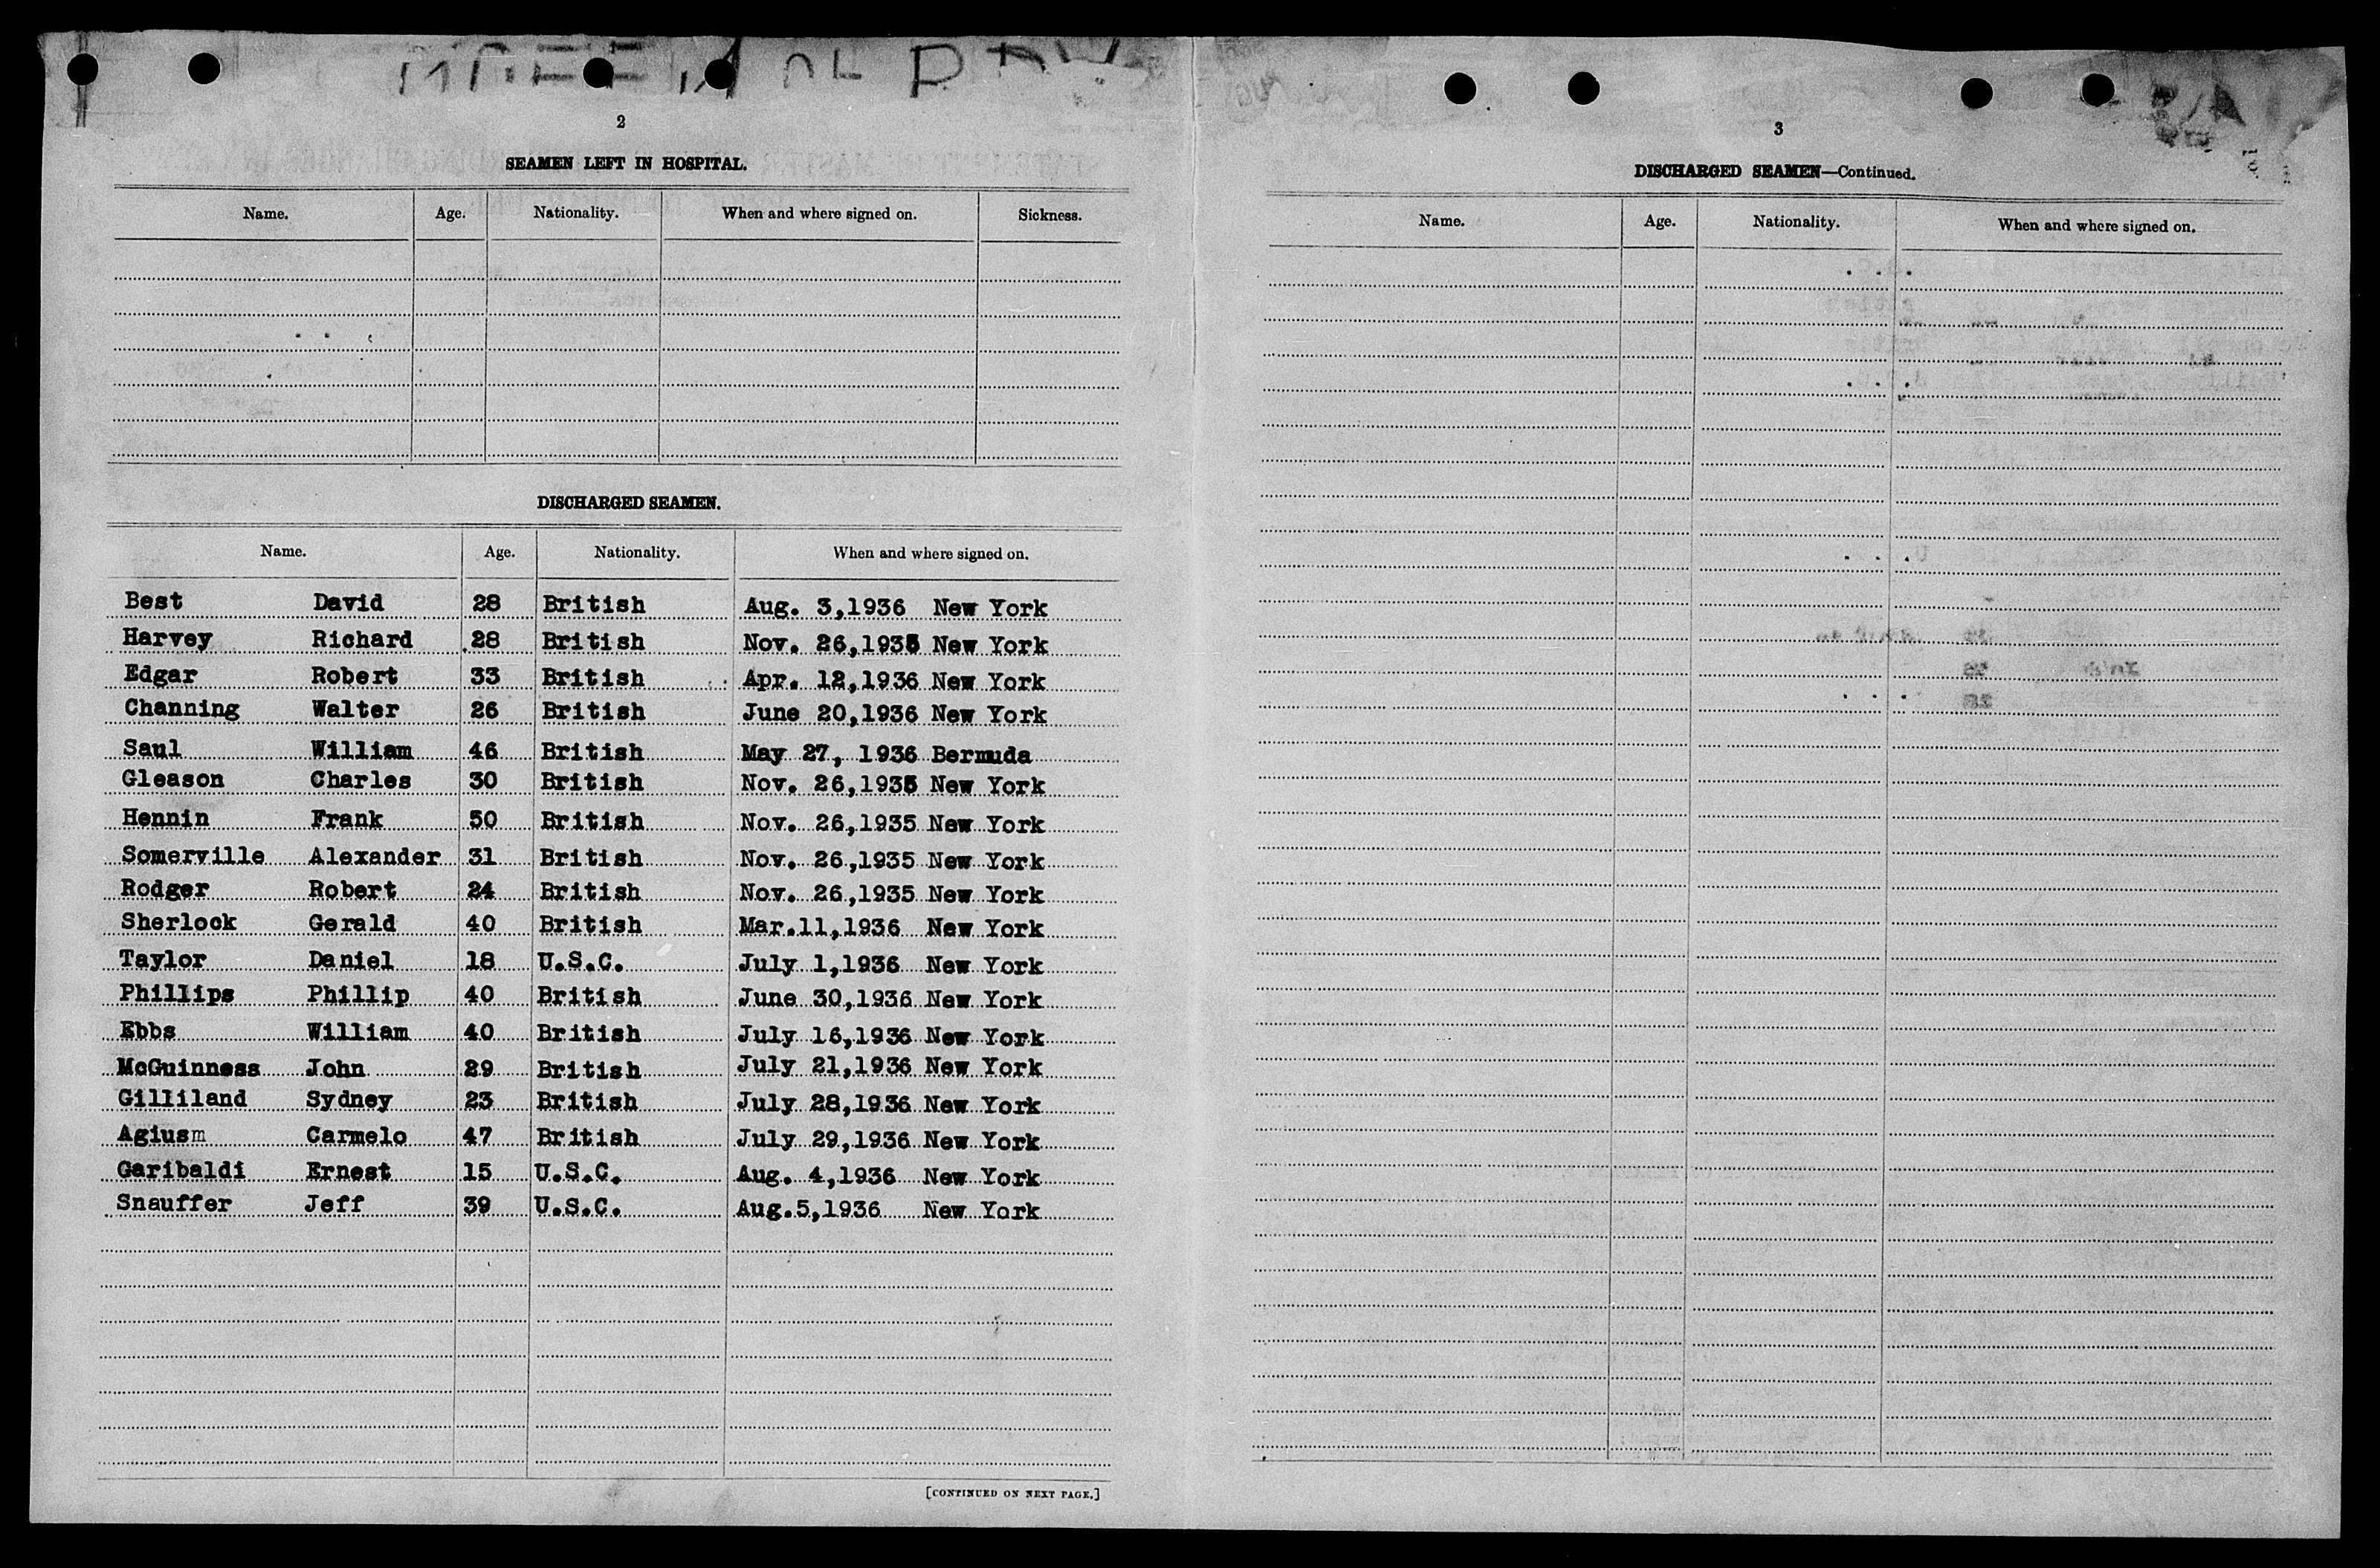 2
SEAMEN LEFT IN HOSPITAL.
Name. Age. Nationality. When and where signed on. Sickness.
DISCHARGED SEAMEN.
Name. Age. Nationality. When and where signed on.
Best David 28 British Aug. 3,1936 New York
Harvey Richard 28 British Nov. 26,1935 New York
Edgar Robert 33 British Apr. 12,1936 New York
Channing Walter 26 British June 20,1936 New York
Saul William 46 British May 27, 1936 Bermuda
Gleason Charles 30 British Nov. 26,1935 New York
Hennin Frank 50 British Nov. 26,1935 New York
Somerville Alexander 31 British Nov. 26,1935 New York
Rodger Robert 24 British Nov. 26,1935 New York
Sherlock Gerald 40 British Mar.11,1936 New York
Taylor Daniel 18 U.S.C. July 1,1936 New York
Phillips Phillip 40 British June 30,1936 New York
Ebbs William 40 British July 16,1936 New York
McGuinness John 29 British July 21,1936 New York
Gilliland Sydney 23 British July 28,1936 New York
Agiusm Carmelo 47 British July 29,1936 New York
Garibaldi Ernest 15 U.S.C. Aug. 4,1936 New York
Snauffer Jeff 39 U.S.C. Aug.5,1936 New York
[CONTINUED ON NEXT PAGE.]
3
DISCHARGED SEAMEN—Continued.
Name. Age. Nationality. When and where signed on.